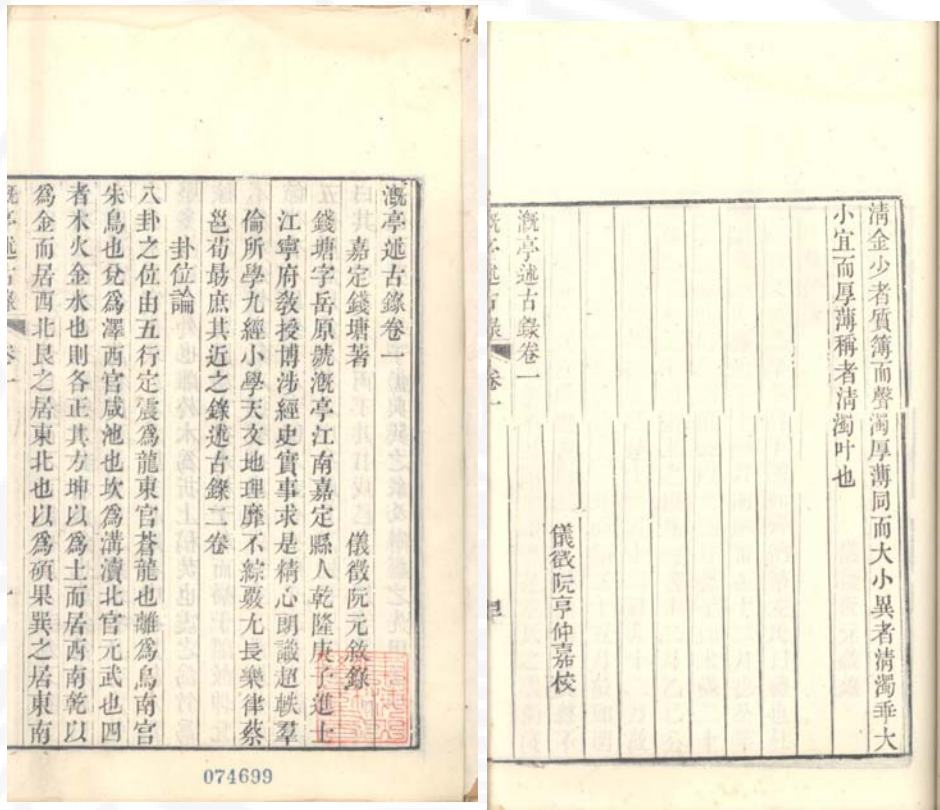 溉亭述古錄卷一
嘉定錢塘著 儀徵阮元敘錄
錢塘字岳原號溉亭江南嘉定縣人乾隆庚子進士
江寧府敎授博涉經史實事求是精心朗識超軼羣
倫所學九經小學天文地理靡不綜覈尢長樂律蔡
邕荀勗庶其近之錄述古錄二卷
卦位論
八卦之位由五行定震爲龍東官蒼龍也離爲鳥南官
朱鳥也兌爲澤西官咸池也坎爲溝瀆北官元武也四
者木火金水也則各正其方坤以爲土而居西南乾以
爲金而居西北艮之居東北也以爲碩果巽之居東南
溉亭述古錄 卷一 一
074699
淸金少者質簿而聲濁厚薄同而大小異者淸濁垂大
小宜而厚薄稱者淸濁叶也
儀徵阮亨仲嘉校
溉亭述古錄卷一
溉亭述古錄 卷一